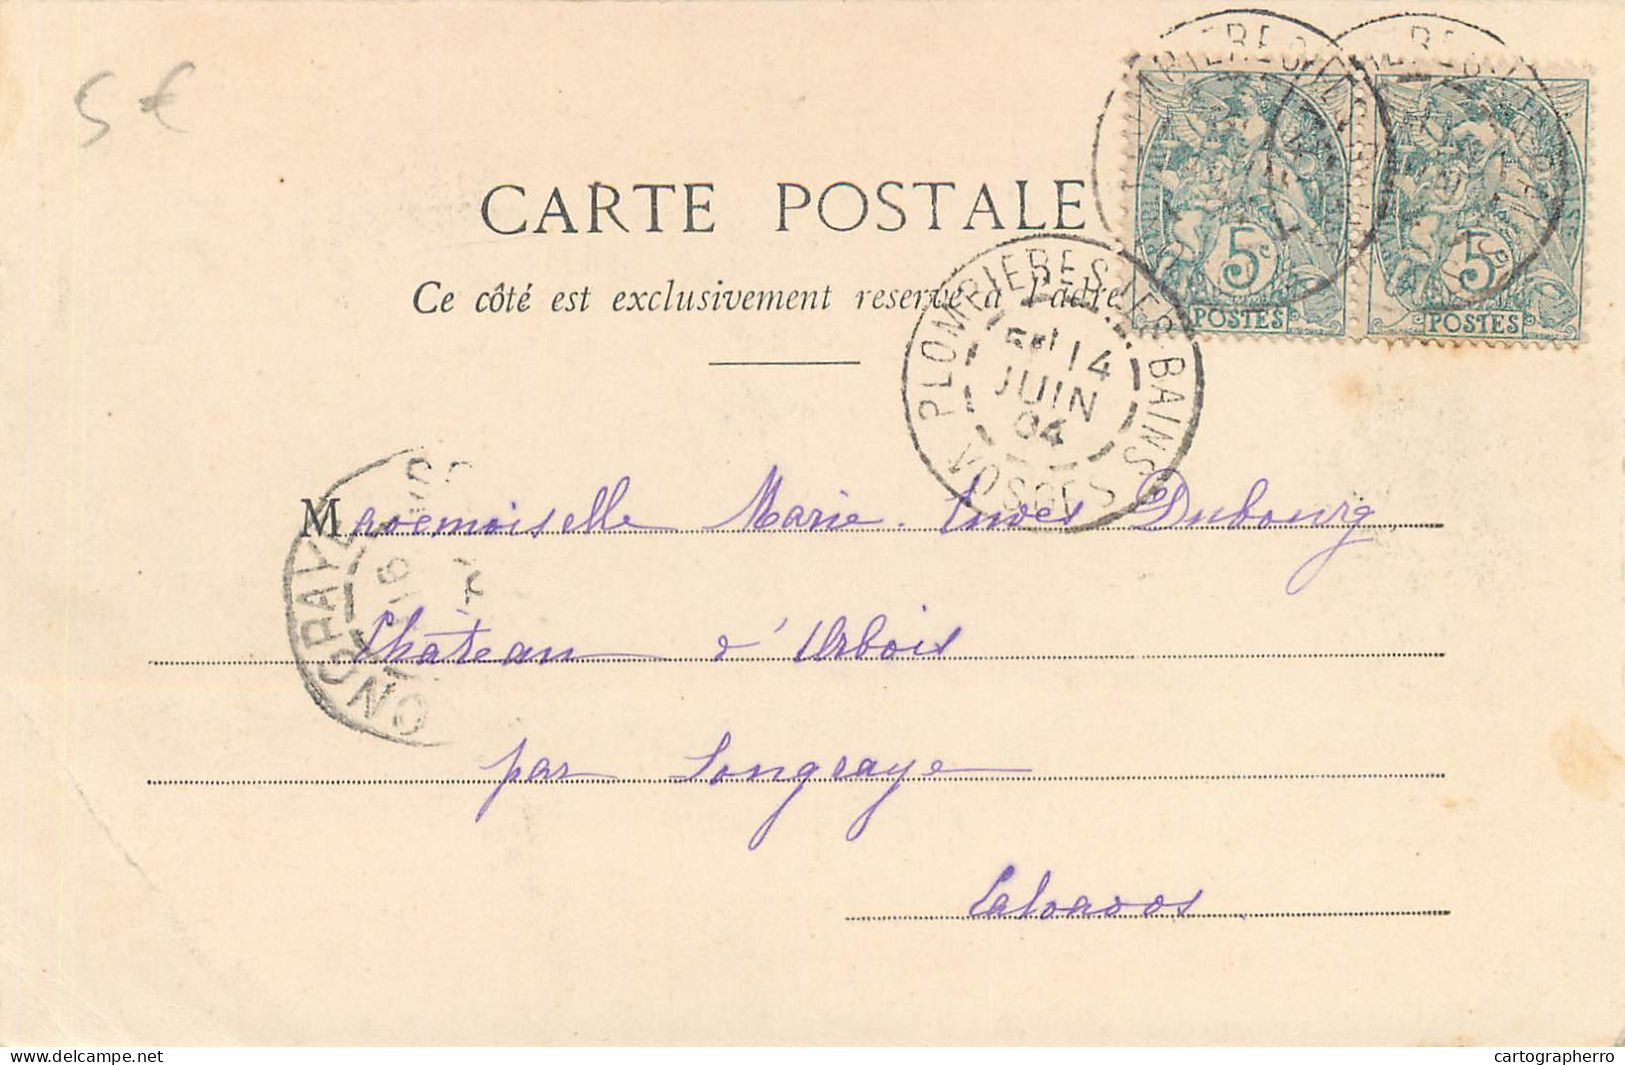 5 €
CARTE POSTALE
Ce côté est exclusivement reservé à l'adre
5c POSTES
5c POSTES
PLOMBIERES-LES-BAINS
5E 14
JUIN
04
VOSGES
Mademoiselle Marie Dubourg
Château d'Urbois
par Longraye
Calvados
www.delcampe.net
cartographerro